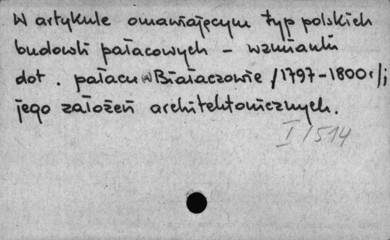 W artykule omawiającym typ polskich
budowli pałacowych - wzmianki
dot. pałacu w Białaczowie /1797-1800r/ i
jego założeń architektonicznych.
I/514